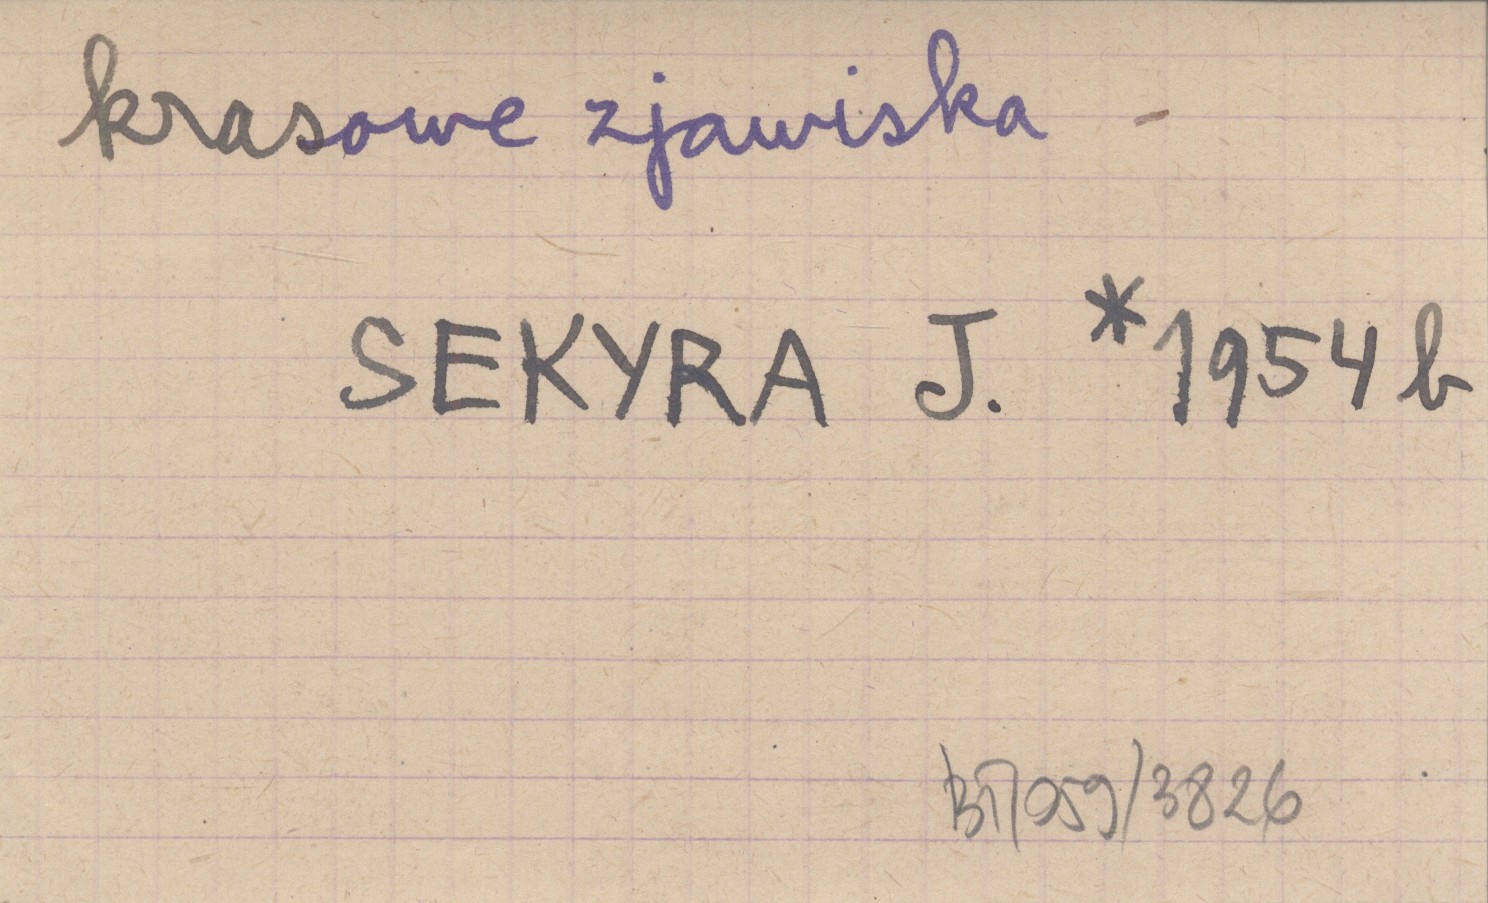 krasowe zjawiska -
SEKYRA J. *1954 b
BT/059/3826